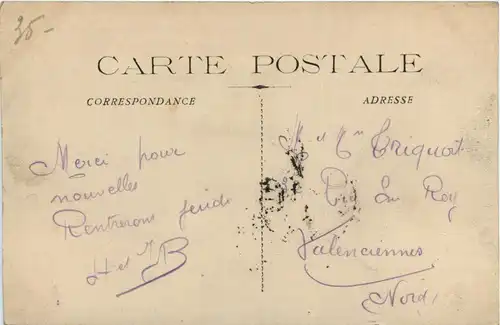 35-
CARTE POSTALE
CORRESPONDANCE
ADRESSE
Merci pour
nouvelles
Rentrerons jeudi
H et JB
M et Me Criquat
Rey
Valenciennes
Nord